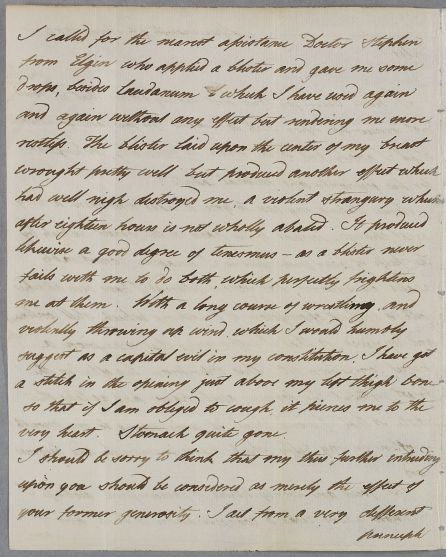 I called for the nearest assistance Doctor Stephen
from Elgin who applied a blister and gave me some
drops, besides Laudanum which I have used again
and again without any effect but rendering me more
restless. The blister laid upon the center of my breast
wrought pretty well but produced another effect which
had well nigh destroyed me, a violent strangury which
after eighteen hours is not wholly abated. It produced
likewise a good degree of tenesmus – as a blister never
fails with me to do both, which perfectly frightens
me at them. With a long course of wrestling, and
violently throwing up wind, which I would humbly
suggest as a capital evil in my constitution, I have got
a stitch in the opening just above my left thigh bone
so that if I am obliged to cough, it pierces me to the
very heart. Stomach quite gone.
I should be sorry to think that my thus further intruding
upon you should be considered as merely the effect of
your former generosity. I act from a very different
principle